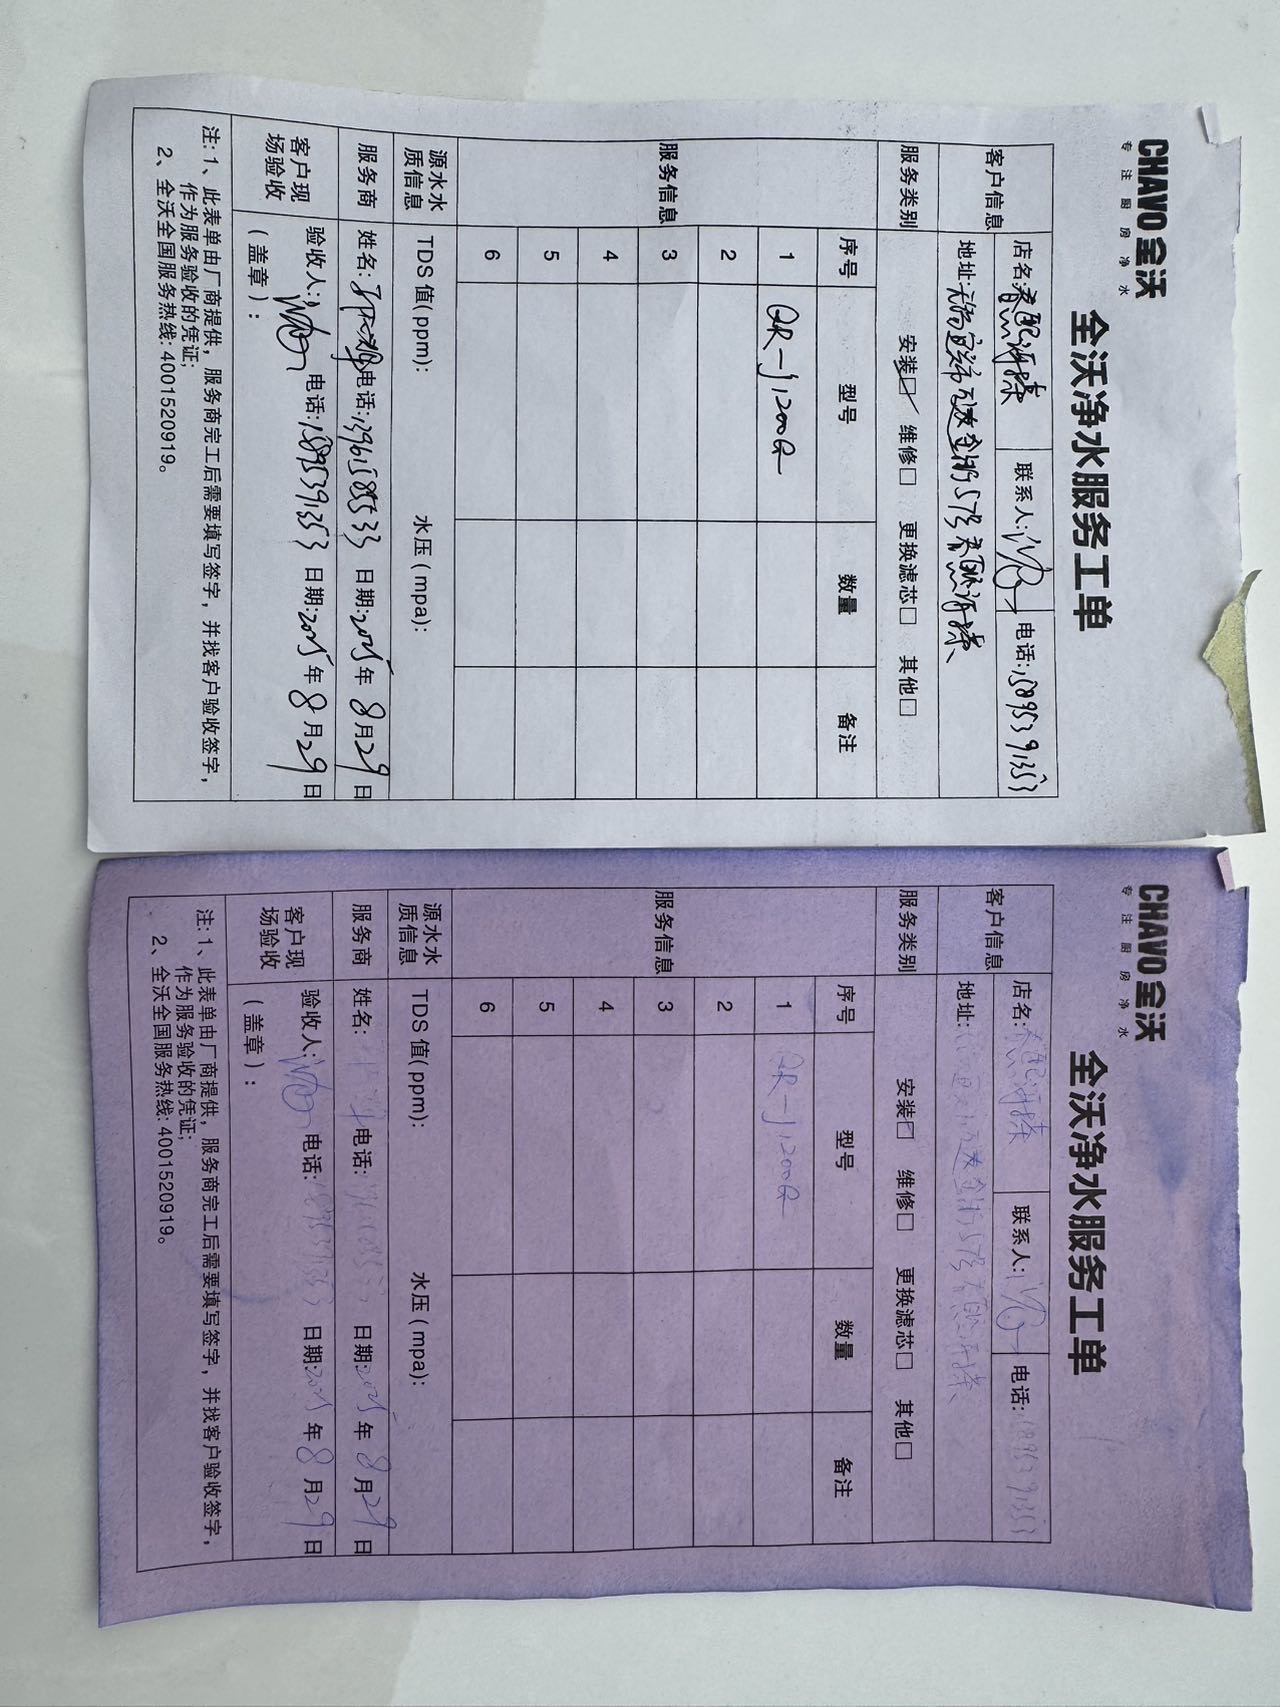 CHAVO全沃
专注厨房净水
全沃净水服务工单
客户信息
店名: 联系人: 电话:15895391353
地址: 无锡宜兴市万达金街57号
服务类别 安装☑ 维修□ 更换滤芯□ 其他□
服务信息
序号 型号 数量 备注
1 QR-J1200Q
2
3
4
5
6
源水水质信息 TDS值(ppm): 水压(mpa):
服务商 姓名: 电话:13961585533 日期:2025年8月29日
客户现场验收 验收人: 电话:15895391353 日期:2025年8月29日
(盖章):
注:1、此表单由厂商提供,服务商完工后需要填写签字,并找客户验收签字,
作为服务验收的凭证;
2、全沃全国服务热线:4001520919。
CHAVO全沃
专注厨房净水
全沃净水服务工单
客户信息
店名: 联系人: 电话:
地址:
服务类别 安装□ 维修□ 更换滤芯□ 其他□
服务信息
序号 型号 数量 备注
1 QR-J1200Q
2
3
4
5
6
源水水质信息 TDS值(ppm): 水压(mpa):
服务商 姓名: 电话: 日期:2025年8月29日
客户现场验收 验收人: 电话: 日期:2025年8月29日
(盖章):
注:1、此表单由厂商提供,服务商完工后需要填写签字,并找客户验收签字,
作为服务验收的凭证;
2、全沃全国服务热线:4001520919。